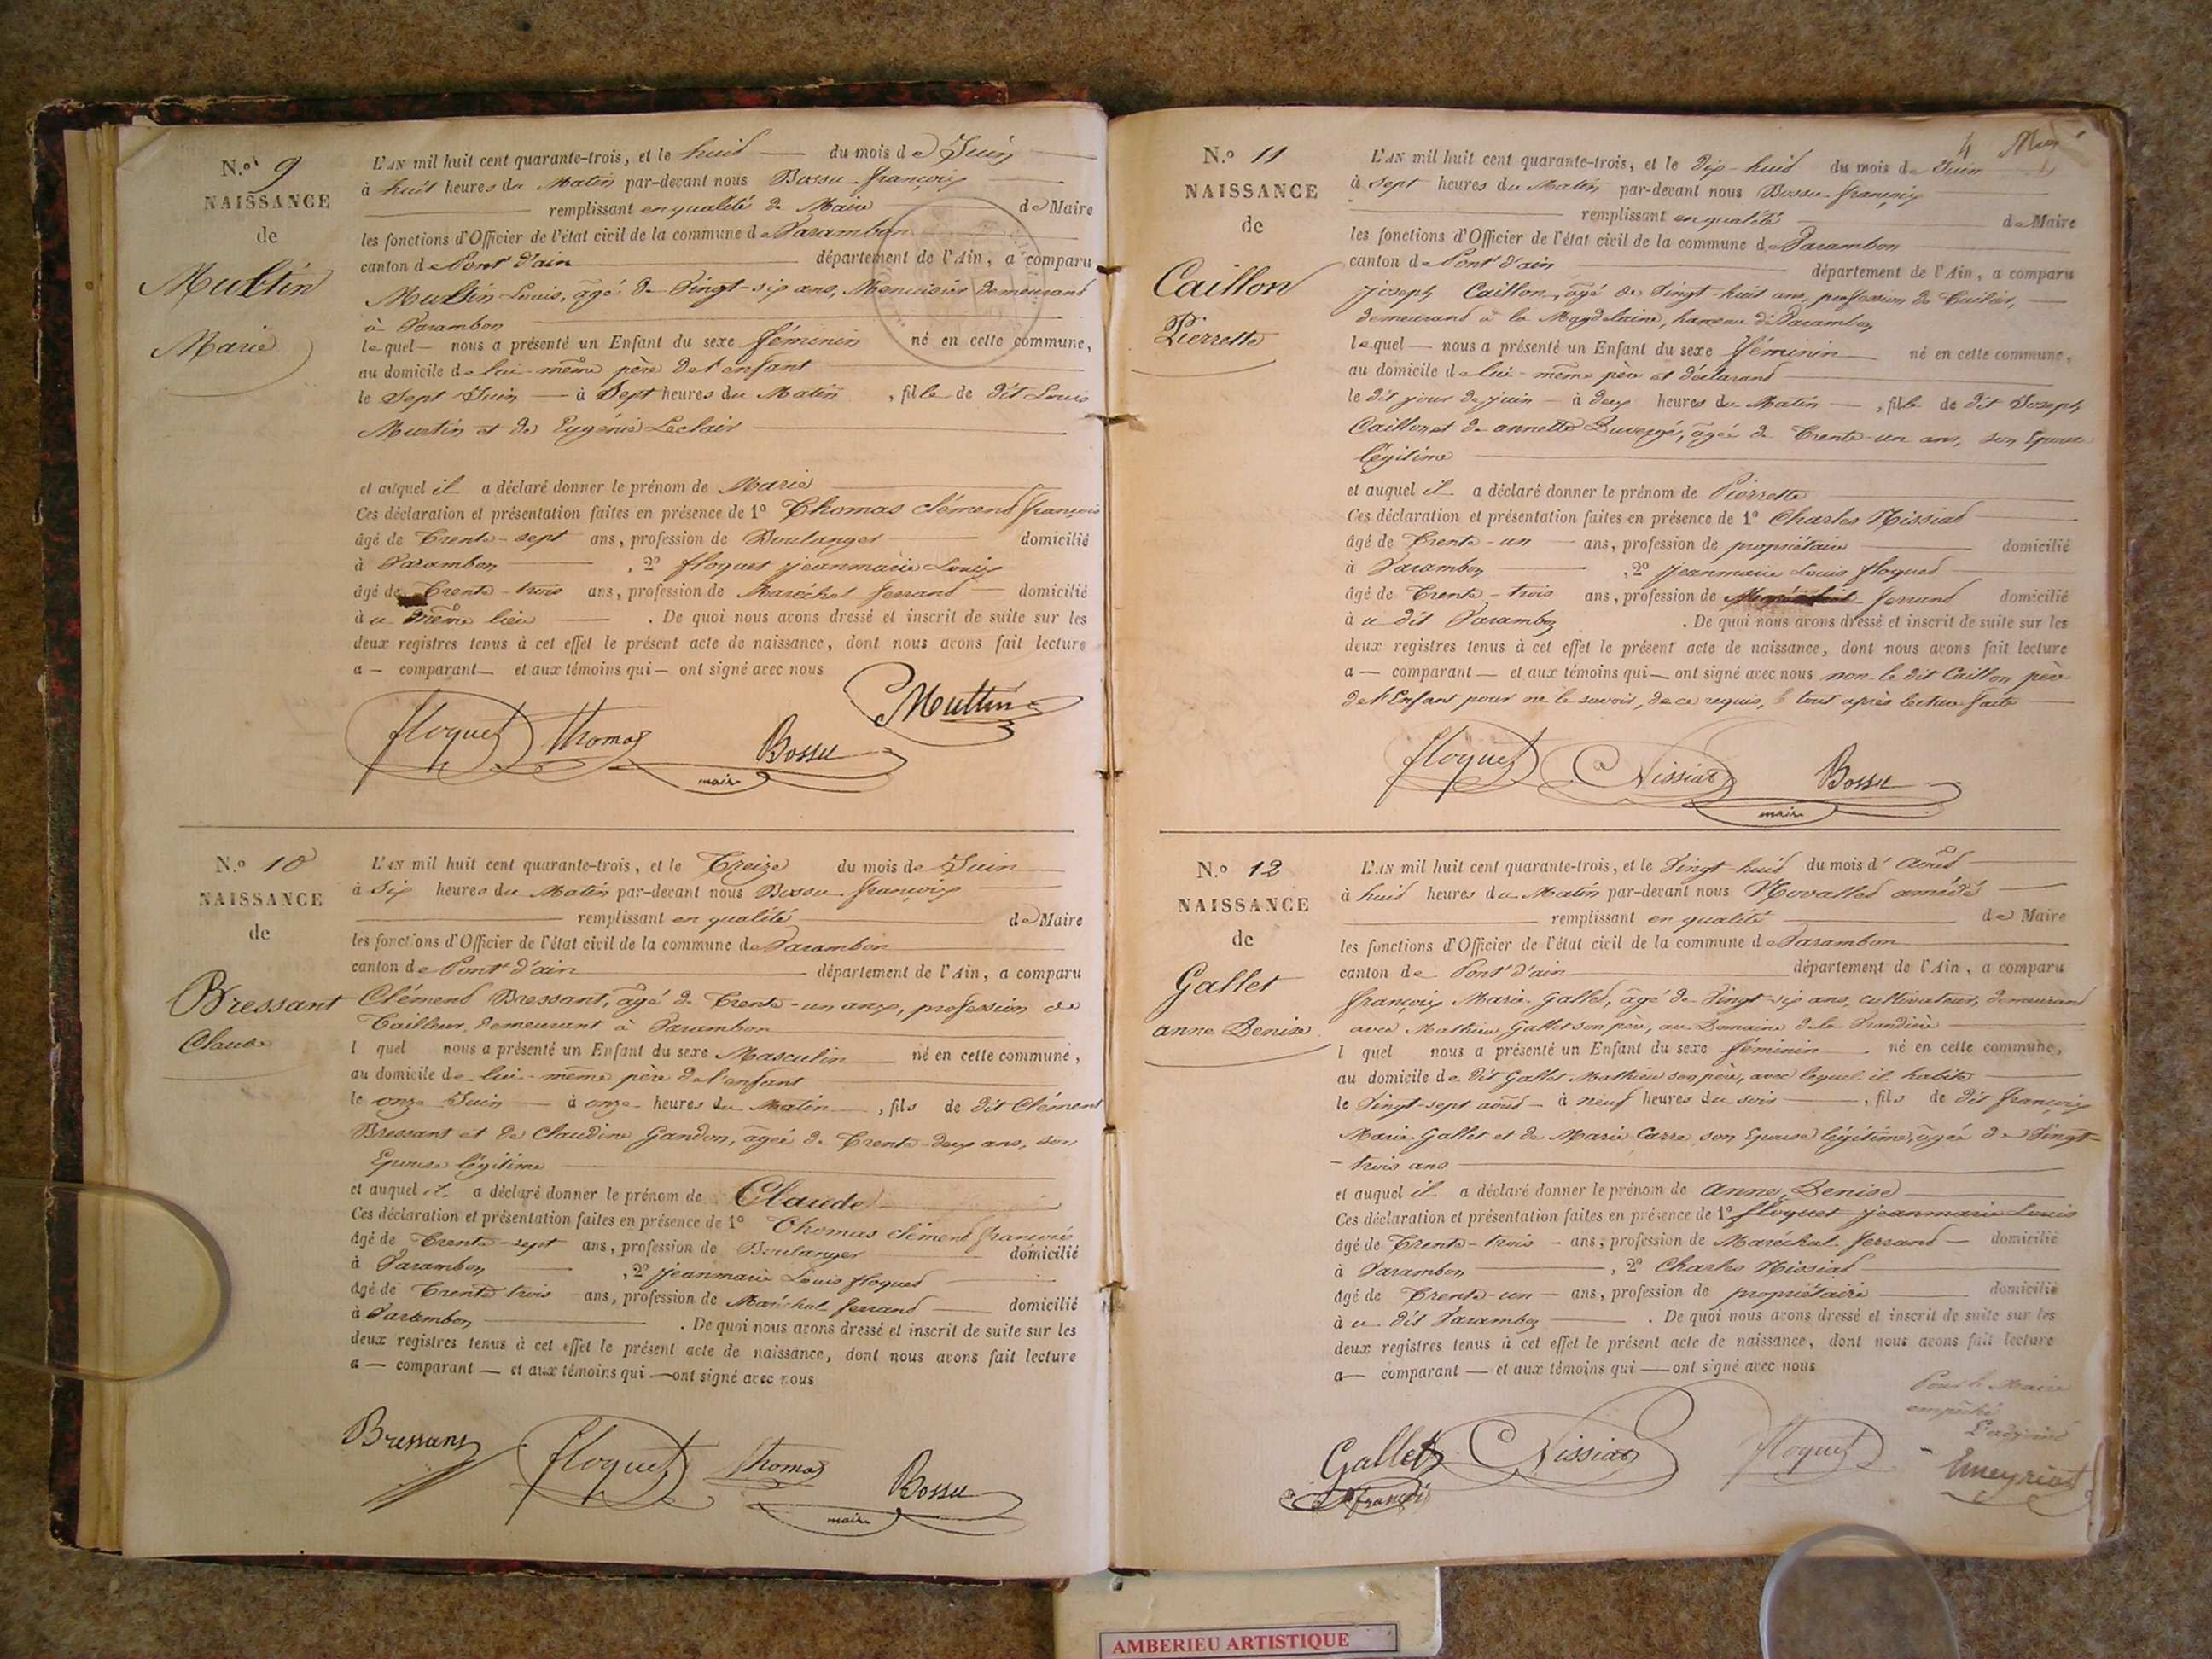 N.º 9
NAISSANCE
de
Multin
Marie
L'AN mil huit cent quarante-trois, et le huit du mois de Juin
à huit heures du Matin par-devant nous Bossu françois
remplissant en qualité de Maire de Maire
les fonctions d'Officier de l'état civil de la commune de Varambon
canton de Pont d'ain département de l'Ain, a comparu
Multin Louis, âgé de Vingt-six ans, Menuisier demeurant
à Varambon
lequel nous a présenté un Enfant du sexe féminin né en cette commune,
au domicile de lui-même père de l'enfant
le Sept Juin à Sept heures du Matin, fille de dit Louis
Multin et de Eugénie Leclair
et auquel il a déclaré donner le prénom de Marie
Ces déclaration et présentation faites en présence de 1º Thomas clément françois
âgé de Trente-sept ans, profession de Boulanger domicilié
à Varambon, 2º floquet jeanmarie Louis
âgé de Trente-trois ans, profession de Maréchal ferrand domicilié
à u même lieu. De quoi nous avons dressé et inscrit de suite sur les
deux registres tenus à cet effet le présent acte de naissance, dont nous avons fait lecture
a comparant et aux témoins qui ont signé avec nous
Muttin
floquet Thomas Bossu
maire
N.º 10
NAISSANCE
de
Bressant
Claude
L'AN mil huit cent quarante-trois, et le Treize du mois de Juin
à Six heures du Matin par-devant nous Bossu françois
remplissant en qualité de Maire
les fonctions d'Officier de l'état civil de la commune de Varambon
canton de Pont d'ain département de l'Ain, a comparu
Clément Bressant, âgé de Trente-un ans, profession de
Tailleur, demeurant à Varambon
l quel nous a présenté un Enfant du sexe Masculin né en cette commune,
au domicile de lui-même père de l'enfant
le onze Juin à onze heures du Matin, fils de dit Clément
Bressant et de Claudine Gandon, âgée de Trente-deux ans, son
Epouse légitime
et auquel il a déclaré donner le prénom de Claude
Ces déclaration et présentation faites en présence de 1º Thomas clément françois
âgé de Trente-sept ans, profession de Boulanger domicilié
à Varambon, 2º jeanmarie Louis floquet
âgé de Trente trois ans, profession de Maréchal ferrand domicilié
à Varambon. De quoi nous avons dressé et inscrit de suite sur les
deux registres tenus à cet effet le présent acte de naissance, dont nous avons fait lecture
a comparant et aux témoins qui ont signé avec nous
Bressant floquet Thomas Bossu
maire
4
N.º 11
NAISSANCE
de
Caillon
Pierrette
L'AN mil huit cent quarante-trois, et le Dix-huit du mois de Juin
à Sept heures du Matin par-devant nous Bossu françois
remplissant en qualité de Maire
les fonctions d'Officier de l'état civil de la commune de Varambon
canton de Pont d'ain département de l'Ain, a comparu
joseph Caillon, âgé de Vingt-huit ans, profession de Tuilier,
demeurant à la Magdelaine, hameau de Varambon
lequel nous a présenté un Enfant du sexe féminin né en cette commune,
au domicile de lui-même père et déclarant
le dit jour de juin à deux heures du Matin, fille de dit Joseph
Caillon et de annette âgée de Trente-un ans, son Epouse
légitime
et auquel il a déclaré donner le prénom de Pierrette
Ces déclaration et présentation faites en présence de 1º Charles Nissiat
âgé de Trente-un ans, profession de propriétaire domicilié
à Varambon, 2º jeanmarie Louis floquet
âgé de Trente-trois ans, profession de ferrand domicilié
à u dit Varambon. De quoi nous avons dressé et inscrit de suite sur les
deux registres tenus à cet effet le présent acte de naissance, dont nous avons fait lecture
a comparant et aux témoins qui ont signé avec nous non le dit Caillon père
de l'Enfant pour ne le savoir, de ce requis, le tout après lecture faite
floquet C Nissiat Bossu
maire
N.º 12
NAISSANCE
de
Gallet
anne Denise
L'AN mil huit cent quarante-trois, et le Vingt-huit du mois d' août
à huit heures du Matin par-devant nous amédé
remplissant en qualité de Maire
les fonctions d'Officier de l'état civil de la commune de Varambon
canton de Pont d'ain département de l'Ain, a comparu
françois Marie Gallet, âgé de Vingt-six ans, cultivateur, demeurant
avec Mathieu Gallet son père, au Domaine de la
l quel nous a présenté un Enfant du sexe féminin né en cette commune,
au domicile de dit Gallet Mathieu son père, avec lequel il habite
le Vingt-sept août à neuf heures du soir, fils de dit françois
Marie Gallet et de Marie Carre, son Epouse légitime, âgée de Vingt-
-trois ans
et auquel il a déclaré donner le prénom de anne Denise
Ces déclaration et présentation faites en présence de 1º floquet jeanmarie Louis
âgé de Trente-trois ans, profession de Maréchal ferrand domicilié
à Varambon, 2º Charles Nissiat
âgé de Trente-un ans, profession de propriétaire domicilié
à u dit Varambon. De quoi nous avons dressé et inscrit de suite sur les
deux registres tenus à cet effet le présent acte de naissance, dont nous avons fait lecture
a comparant et aux témoins qui ont signé avec nous
Pour le Maire
empêché
L'adjoint
Gallet C Nissiat floquet
françois
AMBERIEU ARTISTIQUE